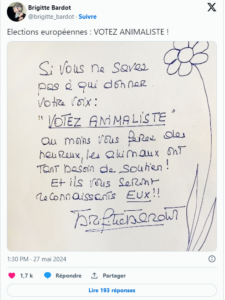 Brigitte Bardot
@brigitte_bardot · Suivre
Elections européennes : VOTEZ ANIMALISTE !
Si vous ne savez
pas à qui donner
votre voix :
"VOTEZ ANIMALISTE"
au moins vous ferez des
heureux, les animaux ont
tant besoin de soutien !
Et ils vous seront
reconnaissants EUX !!
Brigitte Bardot
1:30 PM · 27 mai 2024
1,7 k
Répondre
Partager
Lire 193 réponses